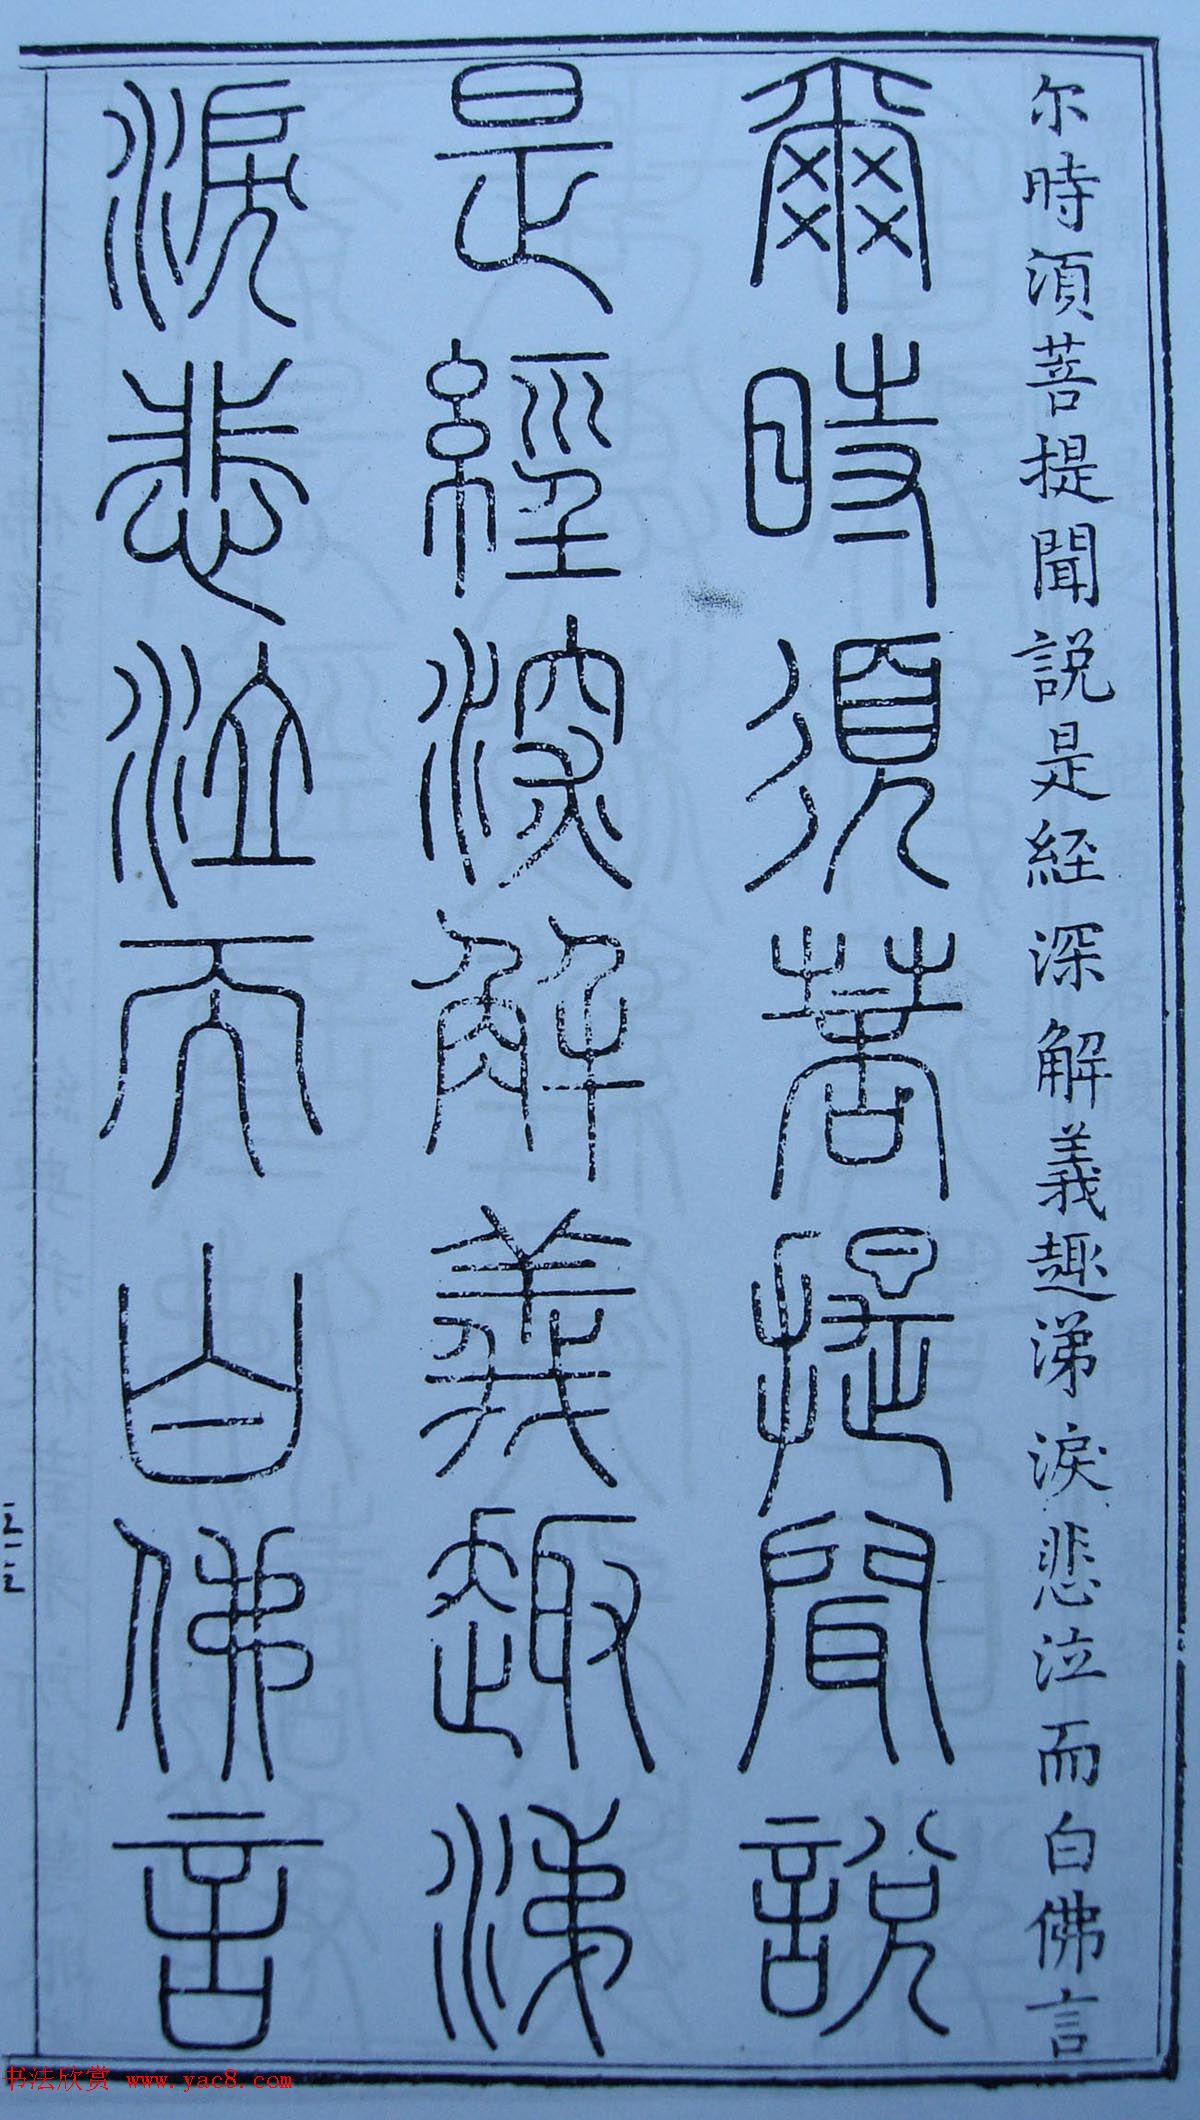 尔時須菩提聞説是経深解義趣涕淚悲泣而白佛言
爾時須菩提聞說
是經深解義趣涕
淚悲泣而白佛言
书法欣赏 www.yac8.com